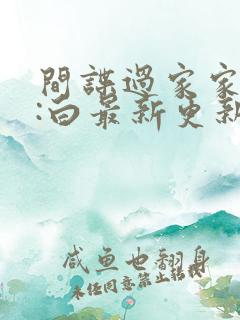 間諜過家家
:白最新更新
咸魚也翻身
未经同意禁止转载